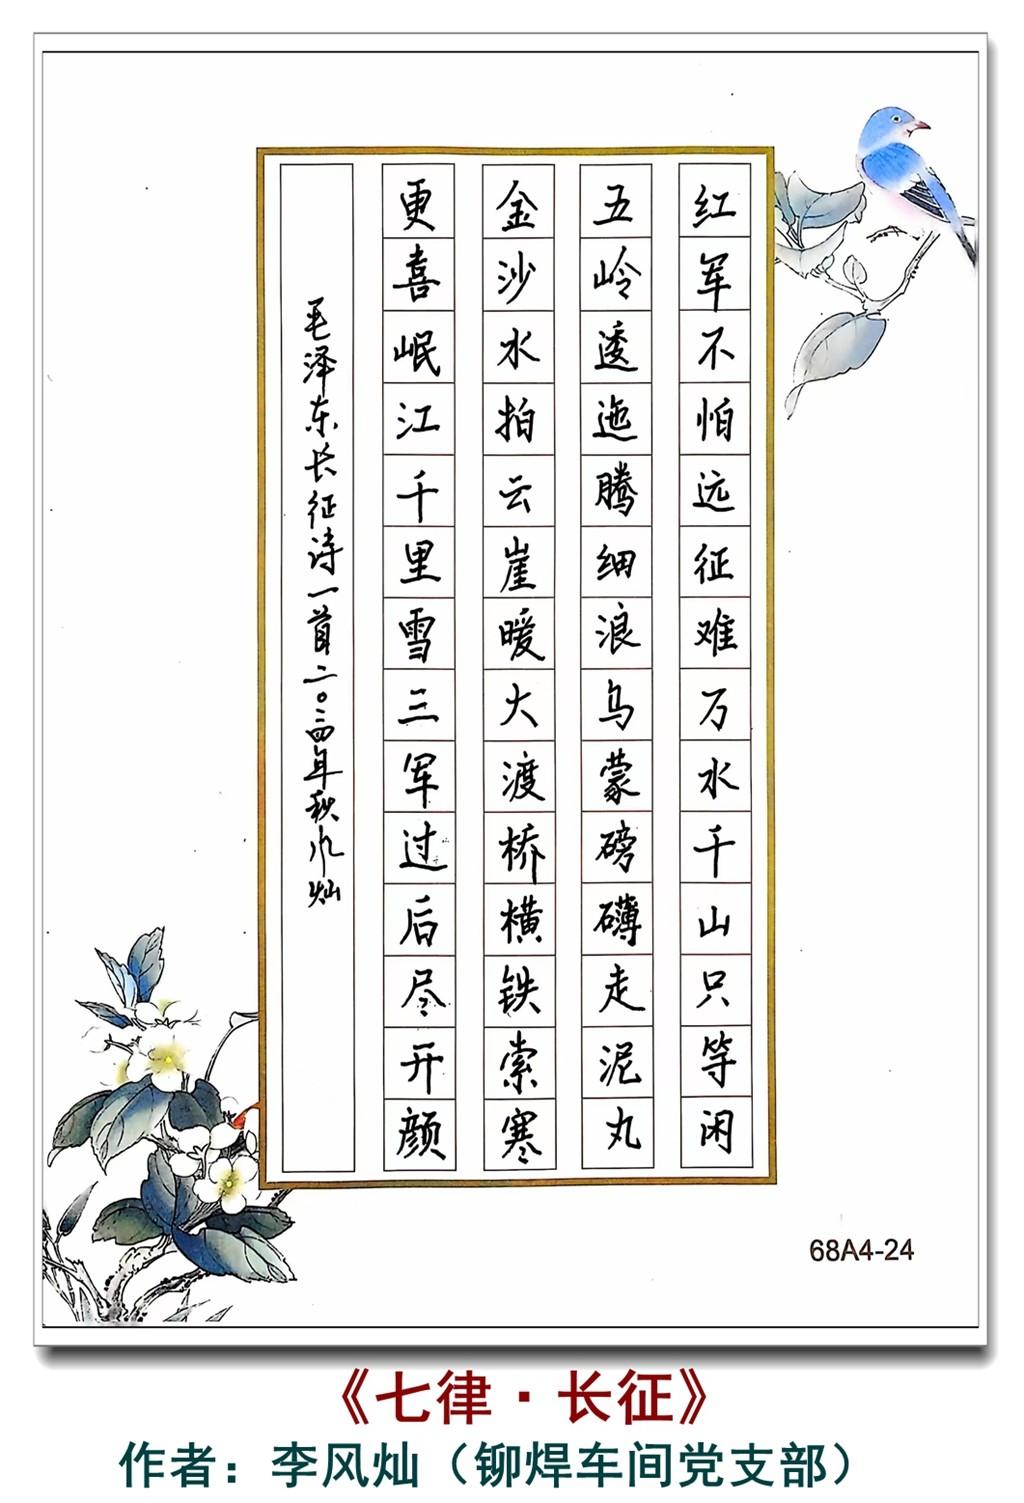 红军不怕远征难万水千山只等闲
五岭逶迤腾细浪乌蒙磅礴走泥丸
金沙水拍云崖暖大渡桥横铁索寒
更喜岷江千里雪三军过后尽开颜
毛泽东长征诗一首二〇二四年秋水灿
68A4-24
《七律·长征》
作者：李风灿（铆焊车间党支部）